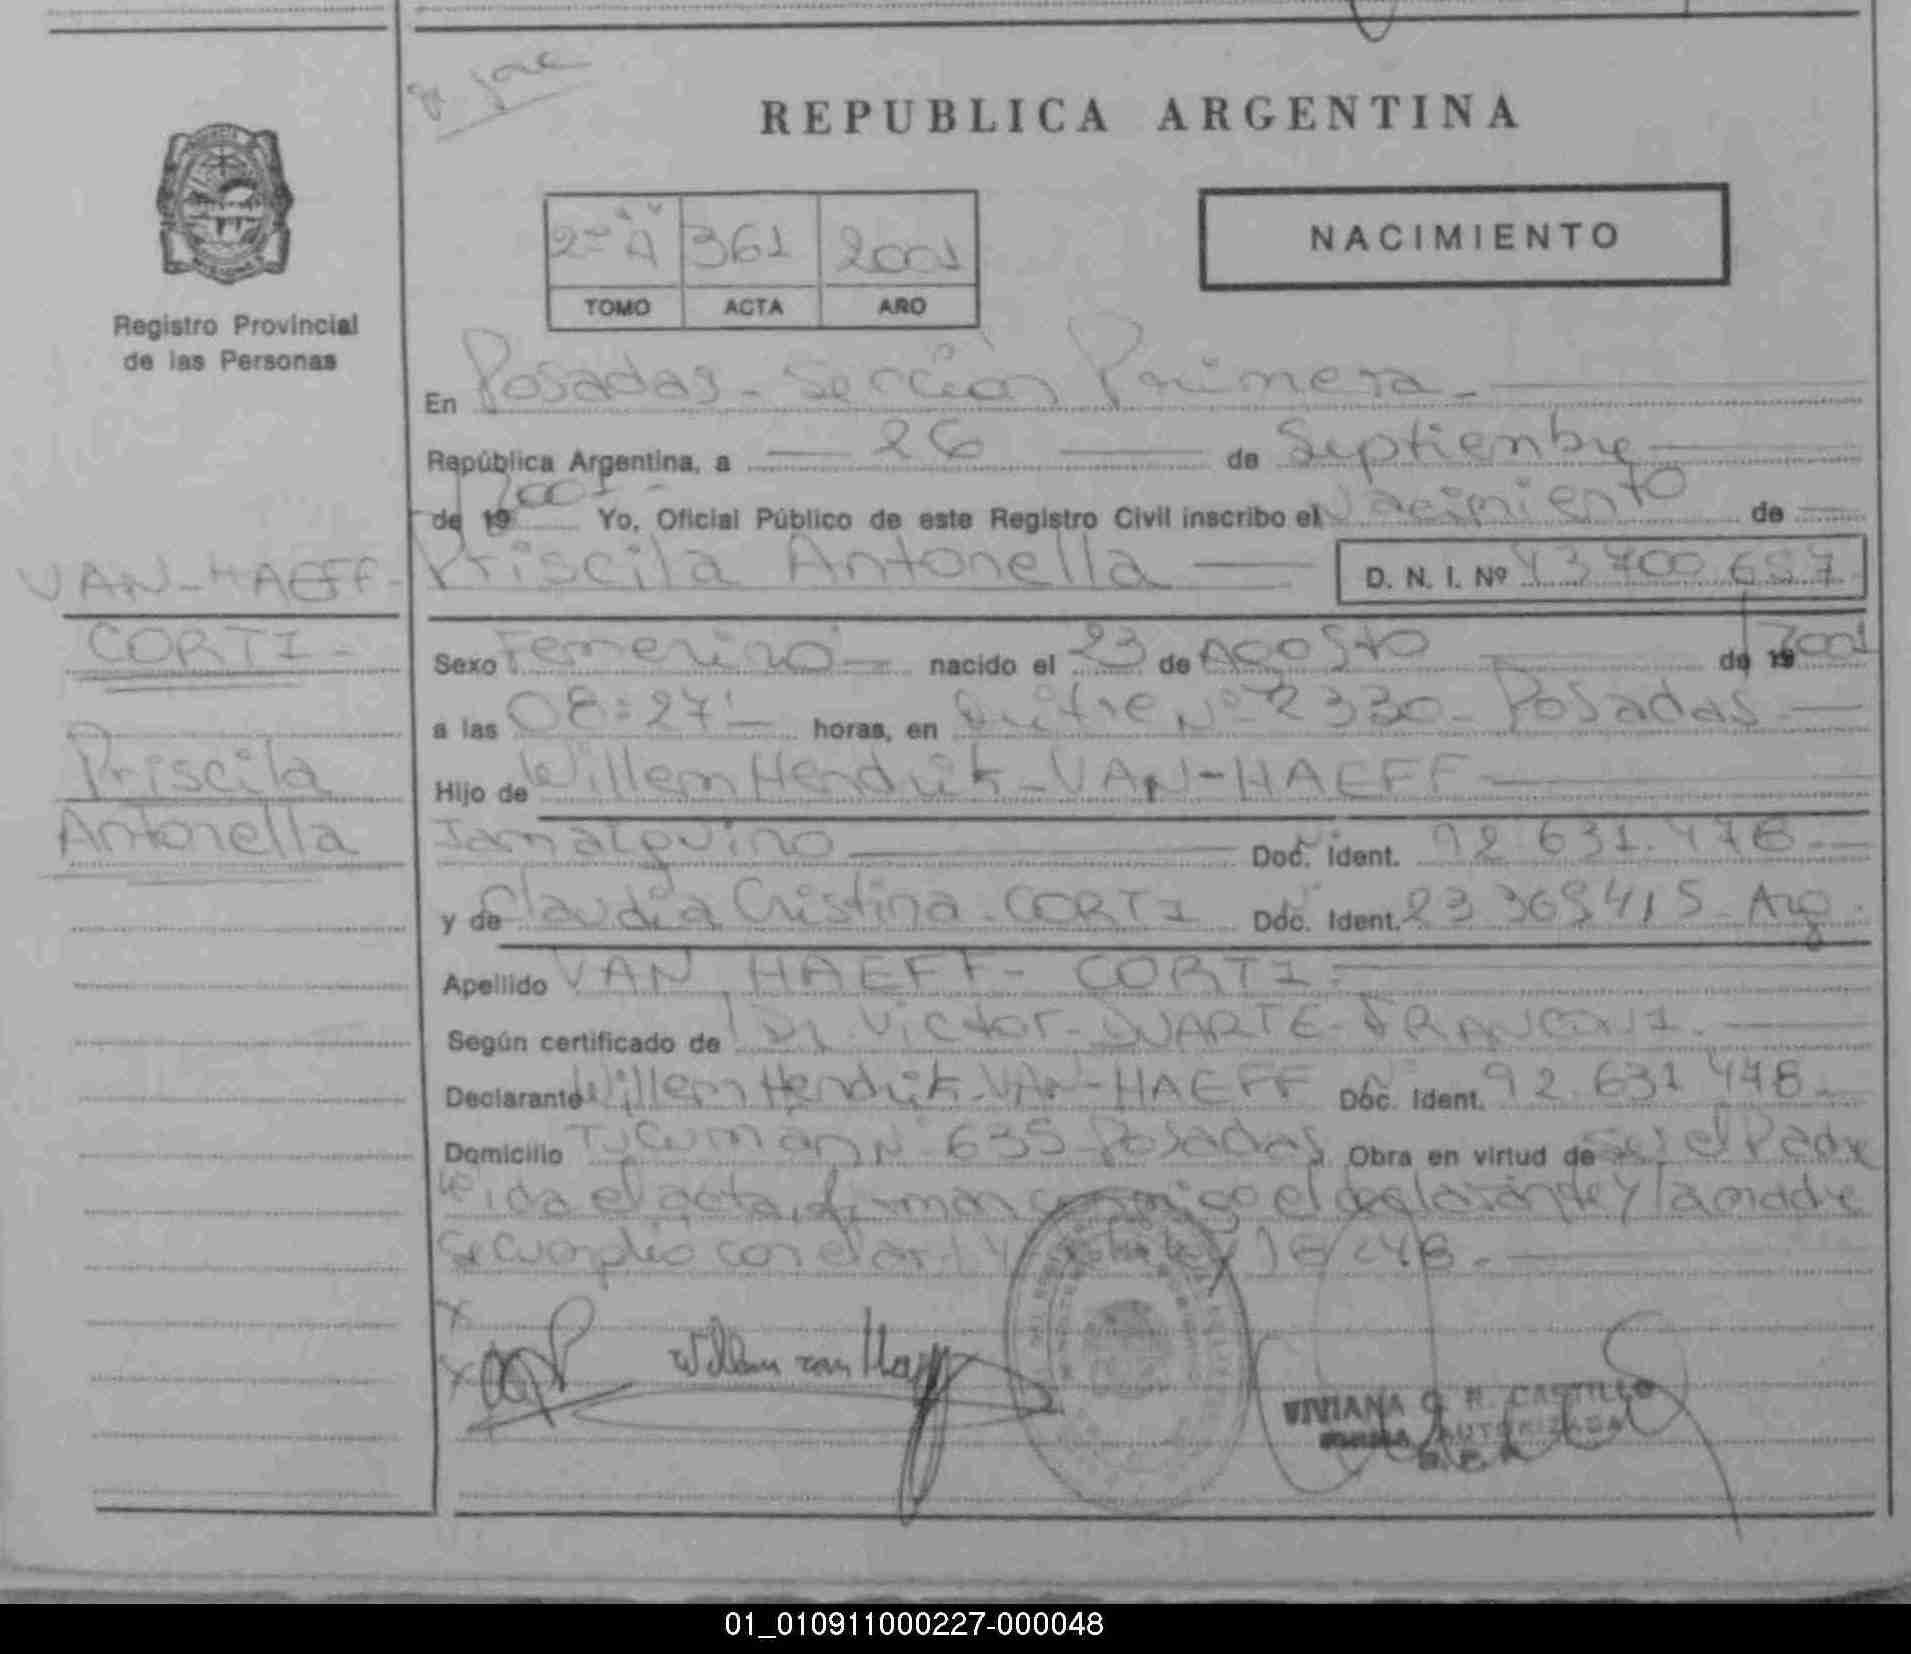 REPUBLICA ARGENTINA
2º "A" 361 2001
TOMO ACTA AÑO
NACIMIENTO
Registro Provincial
de las Personas
En Posadas - Sección Primera -
República Argentina, a 26 de Septiembre
de 19 2001 - Yo, Oficial Público de este Registro Civil inscribo el Nacimiento de
Priscila Antonella D. N. I. Nº 43700657
VAN-HAEFF-
CORTI -
Priscila
Antonella
Sexo Femenino - nacido el 23 de AGOSTO de 19 2001
a las 08:27' - horas, en Nº 2330 - Posadas -
Hijo de Willem Hendrik - VAN-HAEFF
Doc. Ident. 92.631.478 -
y de Claudia Cristina - CORTI Doc. Ident. 23369415 - Arg.
Apellido VAN HAEFF - CORTI -
Según certificado de Dr. Victor - DUARTE -
Declarante Willem Hendrik - VAN-HAEFF Doc. Ident. 92.631.478 -
Domicilio Tucuman Nº 635 - Posadas Obra en virtud de ser el Padre
Leida el acta, firman conmigo el declarante y la madre
Se cumplió con el art. 18.248. -
Willem van Haeff
VIVIANA G. R. CASTILLO
FIRMA AUTORIZADA
01_010911000227-000048